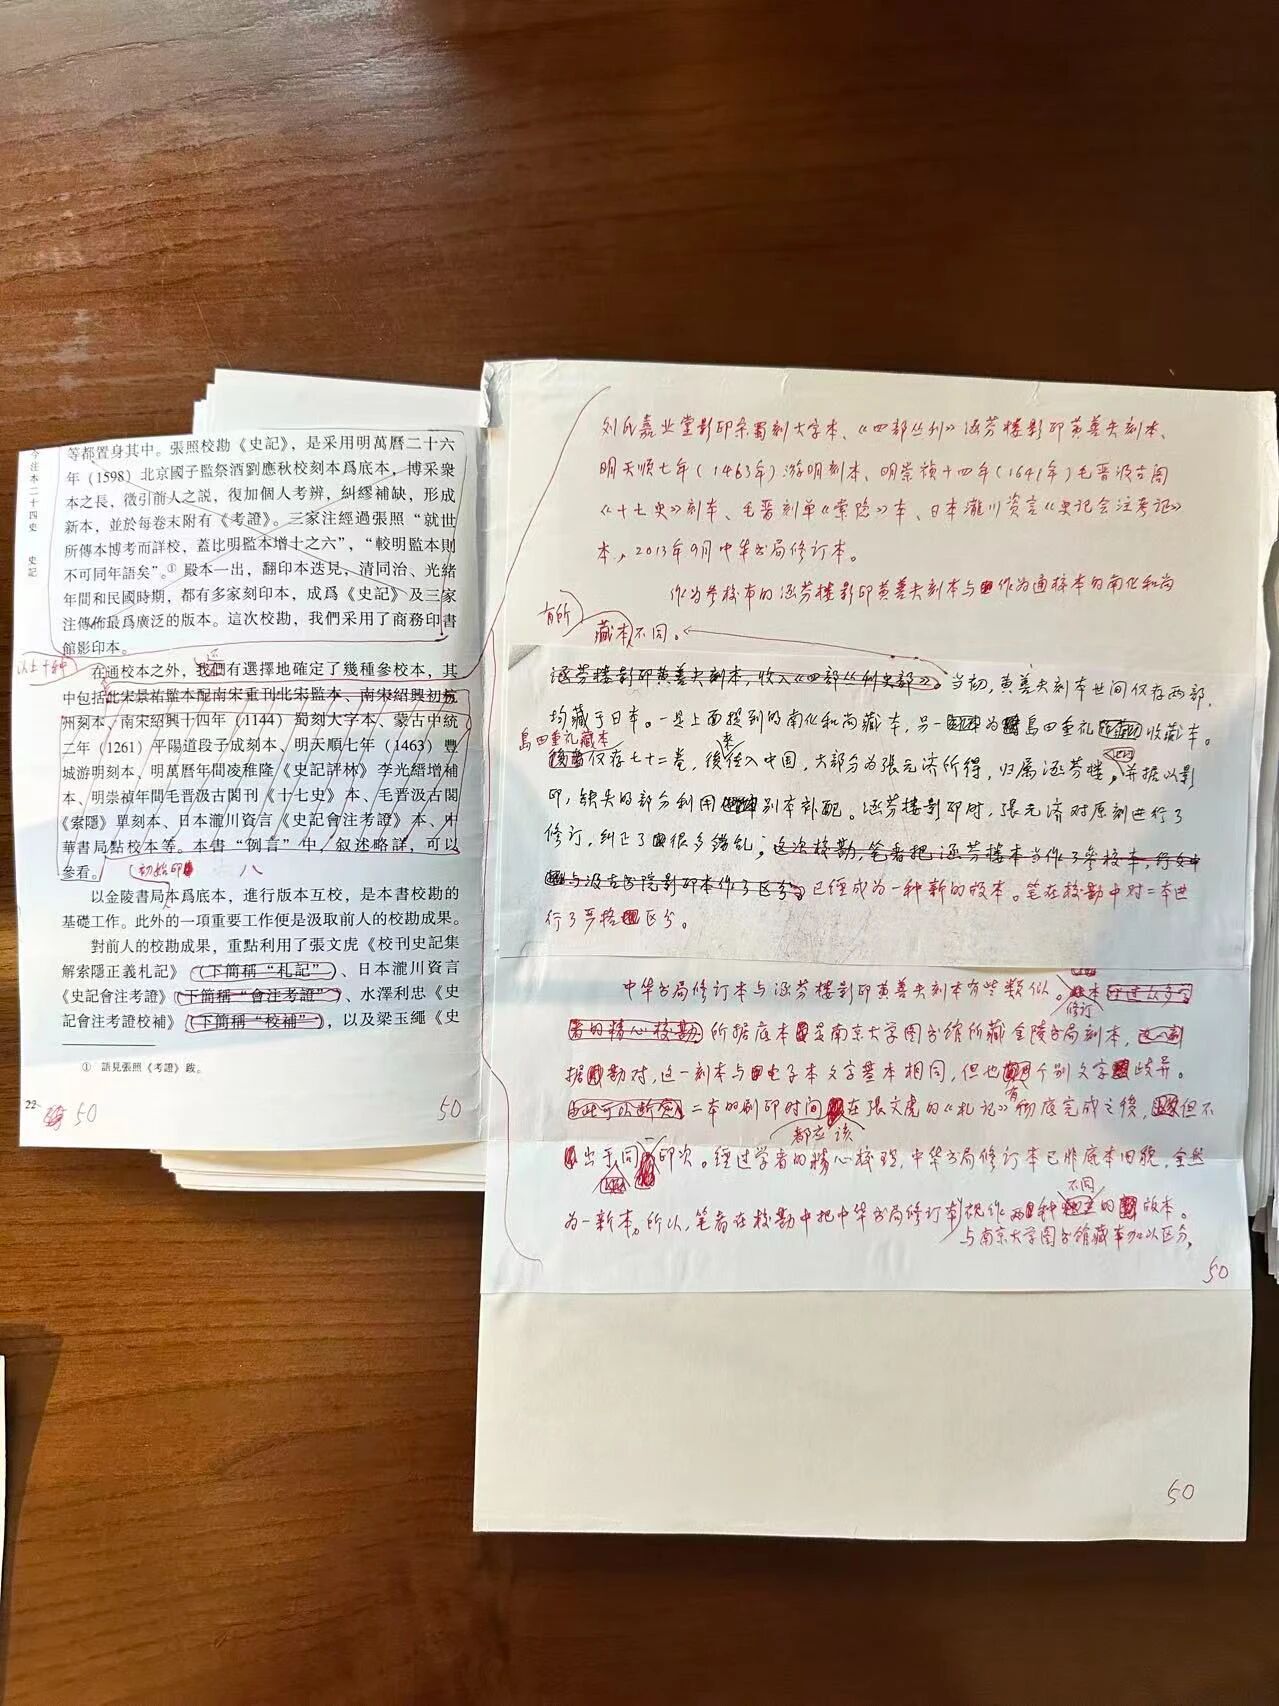 今注本二十四史 史記
等都置身其中。張照校勘《史記》，是采用明萬曆二十六
年（1598）北京國子監祭酒劉應秋校刻本爲底本，博采衆
本之長，徵引前人之説，復加個人考辨，糾繆補缺，形成
新本，並於每卷末附有《考證》。三家注經過張照“就世
所傳本博考而詳校，蓋比明監本增十之六”，“較明監本則
不可同年語矣”。① 殿本一出，翻印本迭見，清同治、光緒
年間和民國時期，都有多家刻印本，成爲《史記》及三家
注傳佈最爲廣泛的版本。這次校勘，我們采用了商務印書
館影印本。
以上十种
在通校本之外，我們有選擇地確定了幾種參校本，其
中包括北宋景祐監本配南宋重刊北宋監本、南宋紹興初杭
州刻本、南宋紹興十四年（1144）蜀刻大字本、蒙古中統
二年（1261）平陽道段子成刻本、明天順七年（1463）豐
城游明刻本、明萬曆年間凌稚隆《史記評林》李光縉增補
本、明崇禎年間毛晋汲古閣刊《十七史》本、毛晋汲古閣
《索隱》單刻本、日本瀧川資言《史記會注考證》本、中
華書局點校本等。本書“例言”中，叙述略詳，可以
參看。
初始印
八
以金陵書局本爲底本，進行版本互校，是本書校勘的
基礎工作。此外的一項重要工作便是汲取前人的校勘成果。
對前人的校勘成果，重點利用了張文虎《校刊史記集
解索隱正義札記》（下簡稱“札記”）、日本瀧川資言
《史記會注考證》（下簡稱“會注考證”）、水澤利忠《史
記會注考證校補》（下簡稱“校補”），以及梁玉繩《史
① 語見張照《考證》跋。
22
50
50
刘氏嘉业堂影印宋蜀刻大字本、《四部丛刊》涵芬楼影印黄善夫刻本、
明天顺七年（1463年）游明刻本、明崇祯十四年（1641年）毛晋汲古阁
《十七史》刻本、毛晋刻单《索隐》本、日本瀧川资言《史记会注考证》
本，2013年9月中华书局修订本。
作为参校本的涵芬楼影印黄善夫刻本与作为通校本的南化和尚
有所
藏本不同。
涵芬楼影印黄善夫刻本，收入《四部丛刊史部》。当初，黄善夫刻本世间仅存两部，
均藏于日本。一是上面提到的南化和尚藏本，另一为島田重礼收藏本。
島田重礼藏本
仅存七十二卷，後往入中国，大部分为張元济所得，归属涵芬楼，并据以影
来
印，缺失的部分利用别本补配。涵芬楼影印时，張元济对原刻进行了
修订，纠正了很多错乱；这次校勘，笔者把涵芬楼本当作了参校本，行文中
与汲古书院影印本作了区分。已经成为一种新的版本。笔在校勘中对二本进
行了严格区分。
中华书局修订本与涵芬楼影印黄善夫刻本有些类似。本
修订
者的精心校勘所据底本是南京大学图书馆所藏金陵书局刻本，
据勘对，这一刻本与电子本文字基本相同，但也个别文字歧异。
有
由此可以断定二本的刷印时间在張文虎的《札记》彻底完成之後，但不
都应该
出于同印次。经过学者的精心校理，中华书局修订本已非底本旧貌，全然
一
不同
为一新本。所以，笔者在校勘中把中华书局修订本视作两种的版本。
与南京大学图书馆藏本加以区分，
50
50